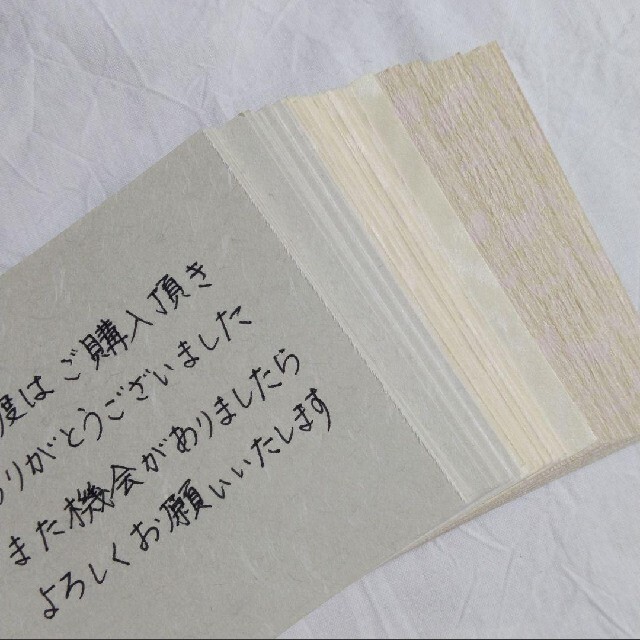 度はご購入頂き
りがとうございました
また機会がありましたら
よろしくお願いいたします